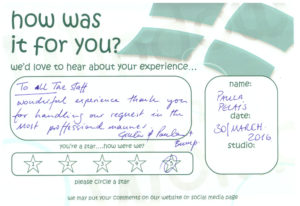 how was
it for you?
we'd love to hear about your experience...
To all The staff
wonderful experience thank you
for handling our request in the
most proffessional manner
& Paula &
Bump
you're a star....how were we?
please circle a star
name:
PAULA
date:
30/MARCH
2016
studio:
we may put your comments on our website or social media page